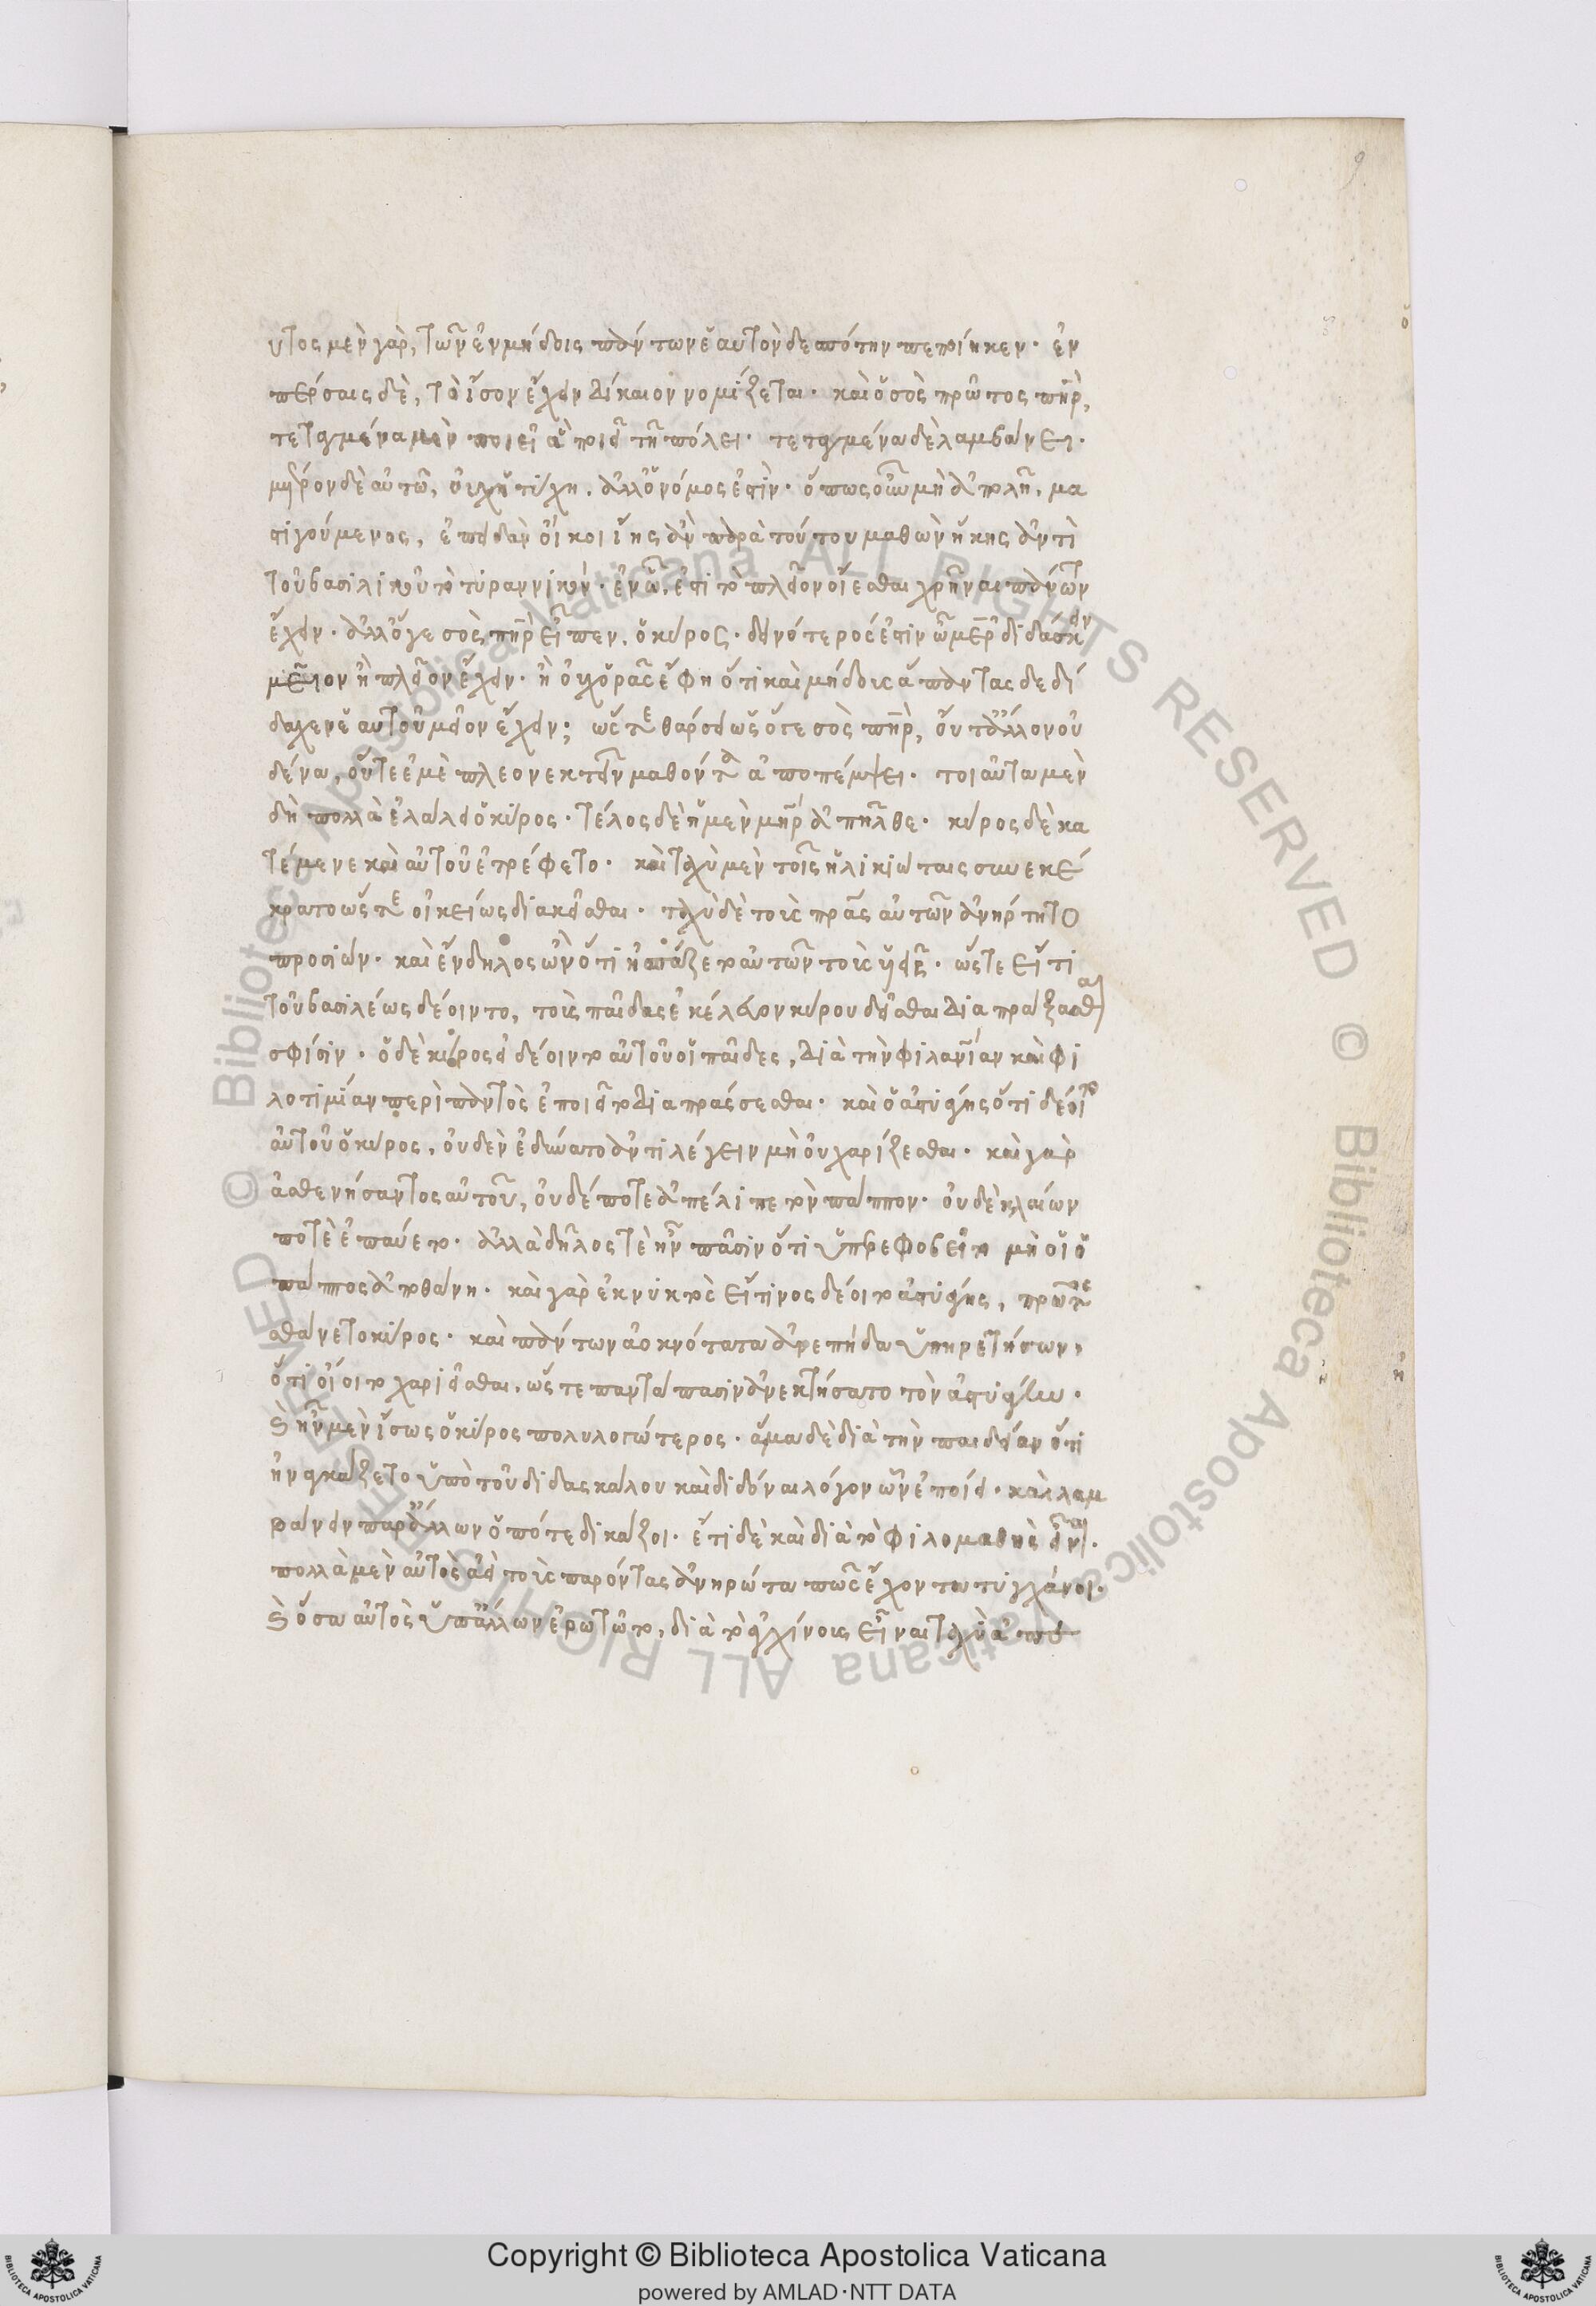 9
υτος μὲν γὰρ, τῶν ἐν μήδοις πάντων ἑαυτὸν δεσπότην πεποίηκεν· ἐν
πέρσαις δὲ, τὸ ἴσον ἔχειν δίκαιον νομίζεται· καὶ ὁ σὸς πρῶτος πηρ,
τεταγμένα μὲν ποιεῖ ἃ ποιεῖ τῆ πόλει· τεταγμένα δὲ λαμβάνει·
μέτρον δὲ αὐτῶ, οὐχ ἡ τύχη, ἀλλ' ὁ νόμος ἐστὶν· ὅπως οὖν μὴ ἀπολῆ, μα
στιγούμενος, ἐπειδὰν οἴκοι ἴης ἂν παρὰ τούτου μαθὼν ἥκης ἀντὶ
τοῦ βασιλικοῦ τὸ τυραννικόν· ἐν ὧ, ἐστι τὸ πλεῖον οἴεσθαι χρῆναι πάντων
ἔχειν· ἀλλ' ὅγε σὸς πηρ εἶπεν, ὁ κύρος· δεινότερός ἐστιν ὦ μερ διδάσκειν
μεῖον ἢ πλεῖον ἔχειν· ἢ οὐχ ὁρᾶς ἔφη ὅτι καὶ μήδους ἅπαντας δεδί
δαχεν ἑαυτοῦ μεῖον ἔχειν; ὥστε θάρσει ὡς ὅτε σὸς πηρ, οὔτ' ἄλλον οὐ
δένα, οὔτε ἐμὲ πλεονεκτεῖν μαθόντα ἀποπέμψει· τοιαῦτα μὲν
δὴ πολλὰ ἐλάλει ὁ κύρος· τέλος δὲ ἡ μὲν μηρ ἀπῆλθε· κύρος δὲ κα
τέμενε καὶ αὐτοῦ ἐτρέφετο· καὶ ταχὺ μὲν τοῖς ἡλικιώταις συνεκέ
κρατο ὥστε οἰκείως διακεῖσθαι· ταχὺ δὲ τοὺς πρας αὐτῶν ἀνήρτητο
προσιὼν· καὶ ἔνδηλος ὢν ὅτι ἠσπάζετο αὐτῶν τοὺς υἱεῖς· ὥστε εἴ τι
τοῦ βασιλέως δέοιντο, τοὺς παῖδας ἐκέλευον κύρου δεῖσθαι διαπράξασθαι
σφίσιν· ὁ δὲ κῦρος εἰ δέοιντο αὐτοῦ οἱ παῖδες, διὰ τὴν φιλανίαν καὶ φι
λοτιμίαν περὶ παντὸς ἐποιεῖτο διαπράσσεσθαι· καὶ ὁ ἀστυάγης ὅτι δέοιτο
αὐτοῦ ὁ κύρος, οὐδὲν ἐδύνατο ἀντιλέγειν μὴ οὐ χαρίζεσθαι· καὶ γὰρ
ἀσθενήσαντος αὐτοῦ, οὐδέποτε ἀπέλιπε τὸν πάππον· οὐδὲ κλαίων
ποτὲ ἐπαύετο· ἀλλὰ δῆλος τὲ ἦν πᾶσιν ὅτι ὑπερεφοβεῖτο μὴ οἱ ὁ
πάππος ἀποθάνη· καὶ γὰρ ἐκ νυκτὸς εἴ τινος δέοιτο ἀστυάγης, πρῶτος
ᾐσθάνετο κύρος· καὶ πάντων ἀοκνότατα ἀνεπήδα ὑπηρετήσων,
ὅτι οἴοιτο χαριεῖσθαι, ὥστε παντάπασιν ἀνεκτήσατο τὸν ἀστυάγην·
καὶ ἦν μὲν ἴσως ὁ κύρος πολυλογώτερος· ἅμα δὲ διὰ τὴν παιδείαν ὅτι
ἠναγκάζετο ὑπὸ τοῦ διδασκάλου καὶ διδόναι λόγον ὧν ἐποίει· καὶ λαμ
βάνειν παρ' ἄλλων ὁπότε δικάζοι· ἔτι δὲ καὶ διὰ τὸ φιλομαθὴς εἶναι·
πολλὰ μὲν αὐτὸς ἀεὶ τοὺς παρόντας ἀνηρώτα πῶς ἔχοντα τυγχάνοι·
καὶ ὅσα αὐτὸς ὑπ' ἄλλων ἐρωτῶτο, διὰ τὸ ἀγχίνους εἶναι ταχὺ ἀπε
Copyright © Biblioteca Apostolica Vaticana
powered by AMLAD·NTT DATA